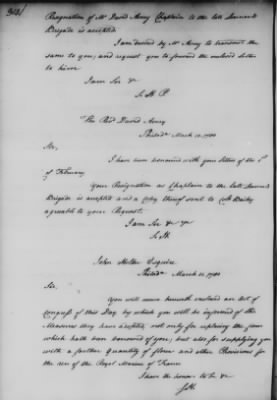 Resignation of Mr David Avery Chaplain to the late Learned
Brigade is accepted.
I am desired by Mr Avery to transmit the
same to you; and request you to forward the enclosed letter
to him.
I am Sir &c
S. H. P.
The Revd David Avery
Philada March 10. 1780
Sir,
I have been honored with your letter of the 1st
of February
Your Resignation as Chaplain to the late Learned
Brigade is accepted and a Copy thereof sent to Colo Bailey
agreeable to your Request.
I am Sir &c &c
S. H.
John Holker Esquire
Philada March 11. 1780
Sir,
You will receive herewith enclosed an Act of
Congress of this Day by which you will be informed of the
Measures they have adopted, not only for replacing the sum
which hath been borrowed of you; but also for supplying you
with a further Quantity of flour and other Provisions for
the use of the Royal Marine of France
I have the honor to be &c
S. H.